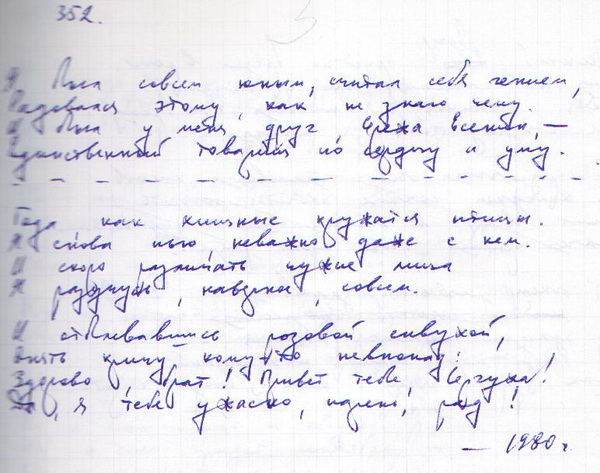 352.
Я был совсем юным, считал себя гением,
Радовался этому, как не знаю чему.
И был у меня друг, Серёжа Всенин, —
Единственный товарищ по сердцу и уму.
— — — — — — — — — — — — —
Года как хищные кружатся птицы.
Я снова пью неважно даже с кем.
И скоро различать чужие лица
Я разучусь, наверное, совсем.
И отблевавшись розовой сивухой,
Опять кричу кому-то невпопад:
Здорово, брат! Привет тебе, Сергуха!
Да, я тебе ужасно, парень, рад!
— 1980 г.